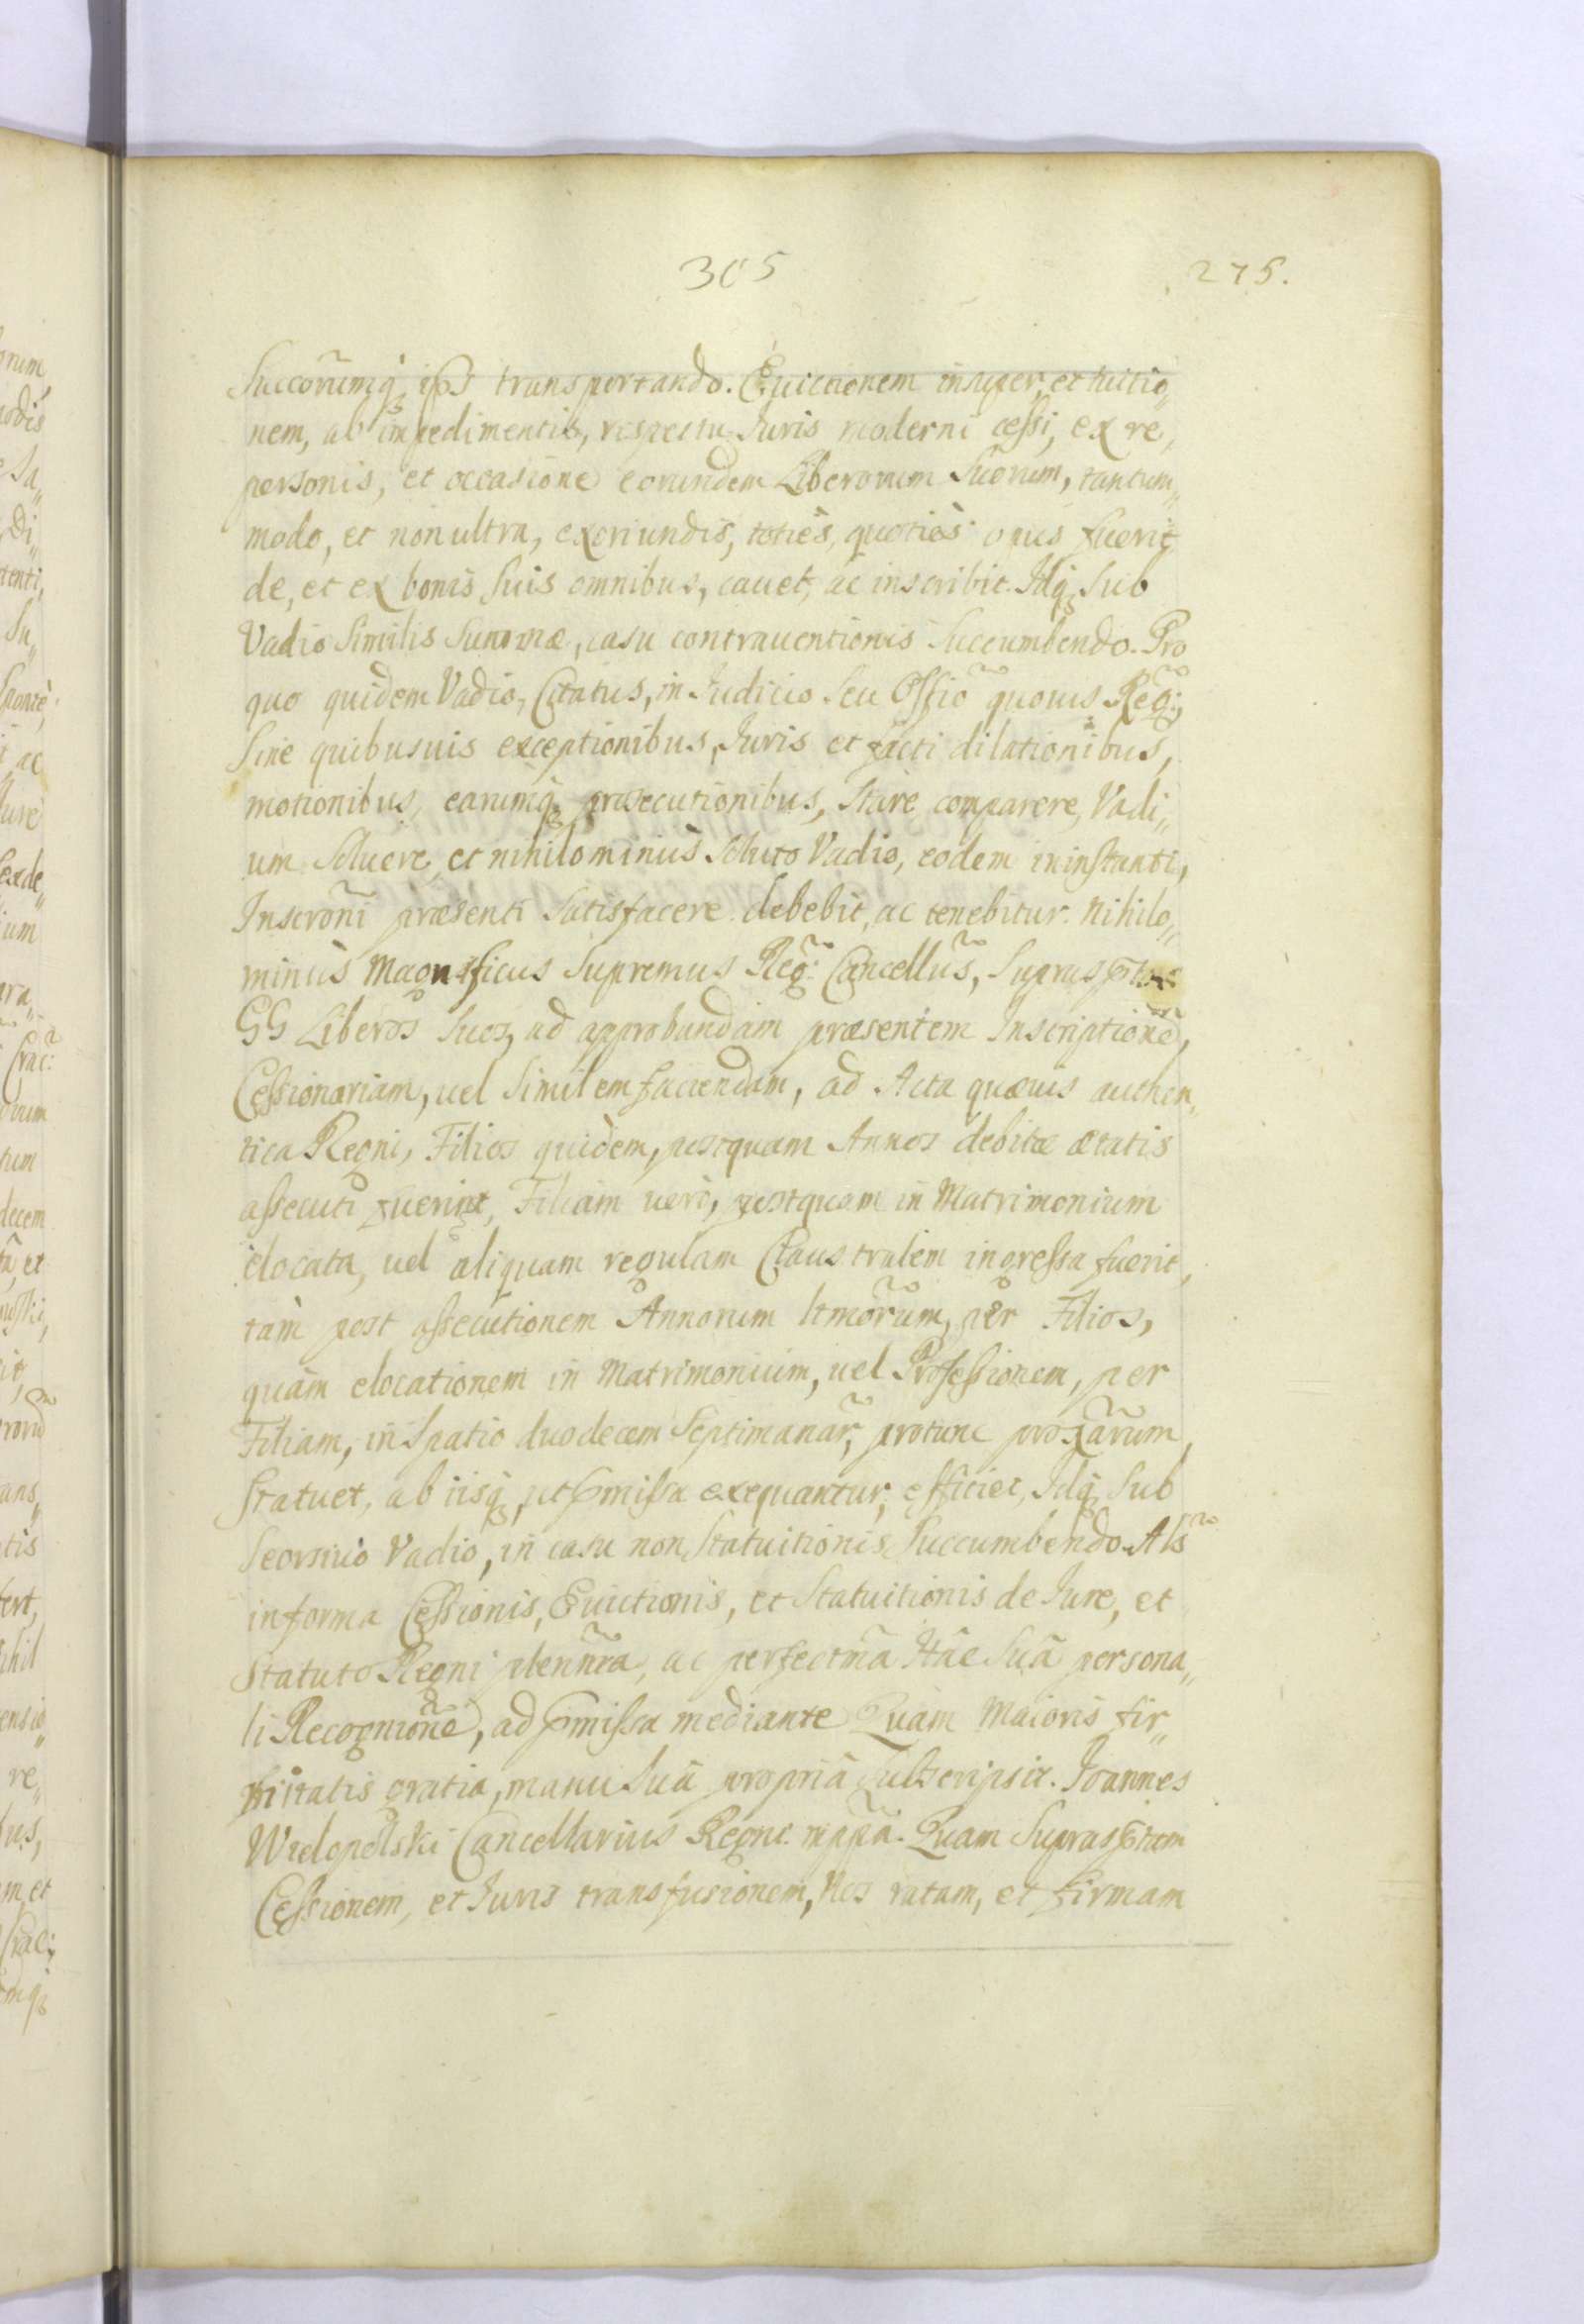 305
275.
Succorumq; ips transportando. Euictionem insuper, et tuitio„
nem, ab impedimentis, respectu Juris moderni cessi, ex re,
personis, et occasione eorundem Liberorum Suorum, tantum„
modo, et non ultra, exoriundis, totiès, quotiès opus fuerit
de, et ex bonis Suis omnibus, cauet, ac inscribit. Idq; Sub
Vadio Similis Summæ, casu contrauentionis Succumbendo. Pro
quo quidem Vadio, Citatus, in Judicio Seu Offio quouis Reg:
Sine quibusuis exceptionibus, Juris et facti dilationibus,
motionibus, earumq; prosecutionibus, Stare, comparere, Vadi„
um Soluere, et nihilominùs Soluto Vadio, eodem in instanti,
Inscroñi præsenti Satisfacere debebit, ac tenebitur. Nihilo„
minùs Magnificus Supremus Reg: Cancellũs, Supras
GG Liberos Suos, ad approbandam præsentem Inscriptionẽ,
Cessionariam, uel Similem faciendam, ad Acta quæuis authen„
tica Regni, Filios quidem, postquam Annos debitæ ætatis
assecuti fuerint, Filiam uerò, postquam in Matrimonium
elocata, uel aliquam regulam Claustralem ingressa fuerit,
tàm post assecutionem Annorum ltmõrum, per Filios,
quàm elocationem in Matrimonium, uel Professionem, per
Filiam, in Spatio duodecem Septimanar̃, protunc proxãrum,
Statuet, ab iisq; ut pmissa exequantur, efficiet, Idq; Sub
Seorsiuo Vadio, in casu non Statuitionis Succumbendo. Als̃
in forma Cessionis, Euictionis, et Statuitionis de Jure, et
Statuto Regni plenñra, ac perfectmã Itãe Suâ persona„
li Recognionẽ, ad pmissa mediante Quàm Maioris fir„
mitatis gratia, manu Suâ propriâ Subscripsit. Joannes
Wielopolski Cancellarius Regni mppã. Quam Suprasptam
Cessionem, et Juris transfusionem, Nos ratam, et firmam